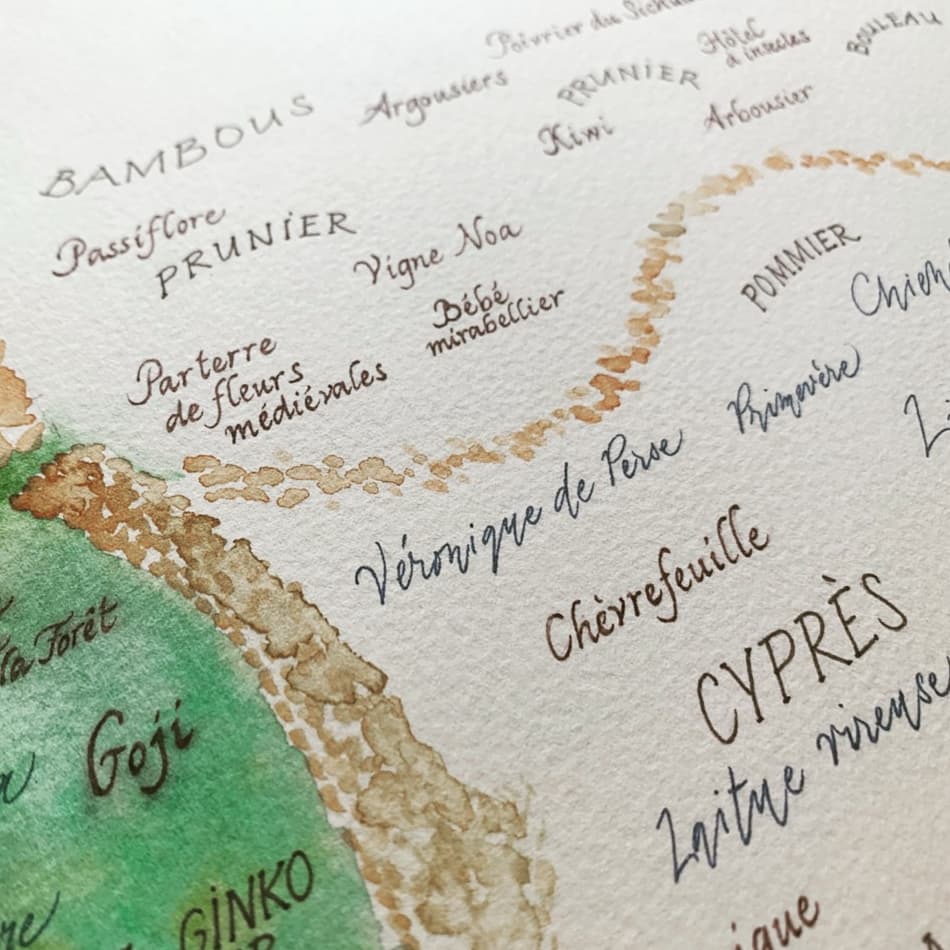 Poivrier du Sichuan
Hôtel
à insectes
BOULEAU
BAMBOUS
Argousiers
PRUNIER
Kiwi
Arbousier
Passiflore
PRUNIER
Vigne Noa
POMMIER
Bébé
mirabellier
Parterre
de fleurs
médiévales
Primevère
Véronique de Perse
Chèvrefeuille
la Forêt
CYPRÈS
Goji
Laitue vireuse
GINKO